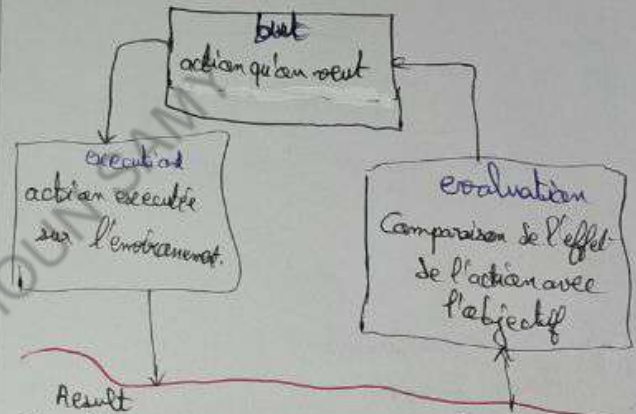 but
action qu'on veut
execution
action executée
sur l'environement.
evaluation
Comparaison de l'effet
de l'action avec
l'objectif
Result